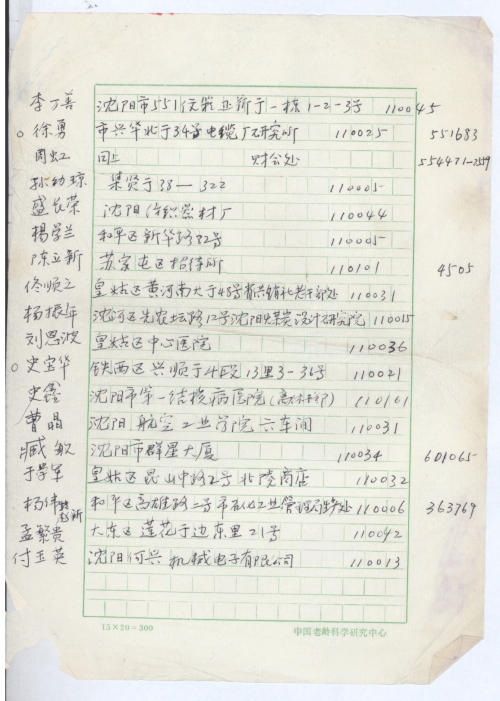 李丁善 沈阳市551信箱 一栋1-2-3号 110045
徐勇 市兴华北于34号电缆厂研究所 110025 551683
周虹 同上 财会处 554471-2559
孙幼琼 集贤于38—322 110005
盛长荣 沈阳 密材厂 110044
杨学兰 和平区新华路82号 110005
陈立新 苏家屯区招待所 110101 4505
佟顺之 皇姑区黄河南大于48号 老干部处 110031
杨振年 沈河区先农坛路12号沈阳煤炭设计研究院 110015
刘思波 皇姑区中心医院 110036
史宝华 铁西区兴顺于4段13里3-36号 110021
史鑫 沈阳市第一结核病医院 110161
曹晶 沈阳航空工业学院六车间 110031
臧敏 沈阳市群星大厦 110034 601065
于学军 皇姑区昆山中路2号北陵商店 110032
杨伟 和平区高雄路二号市石化工业管理局 处 110006 363769
孟繁贵 大东区莲花于边东里21号 110042
付玉英 沈阳何兴机械电子有限公司 110013
15×20=300 中国老龄科学研究中心